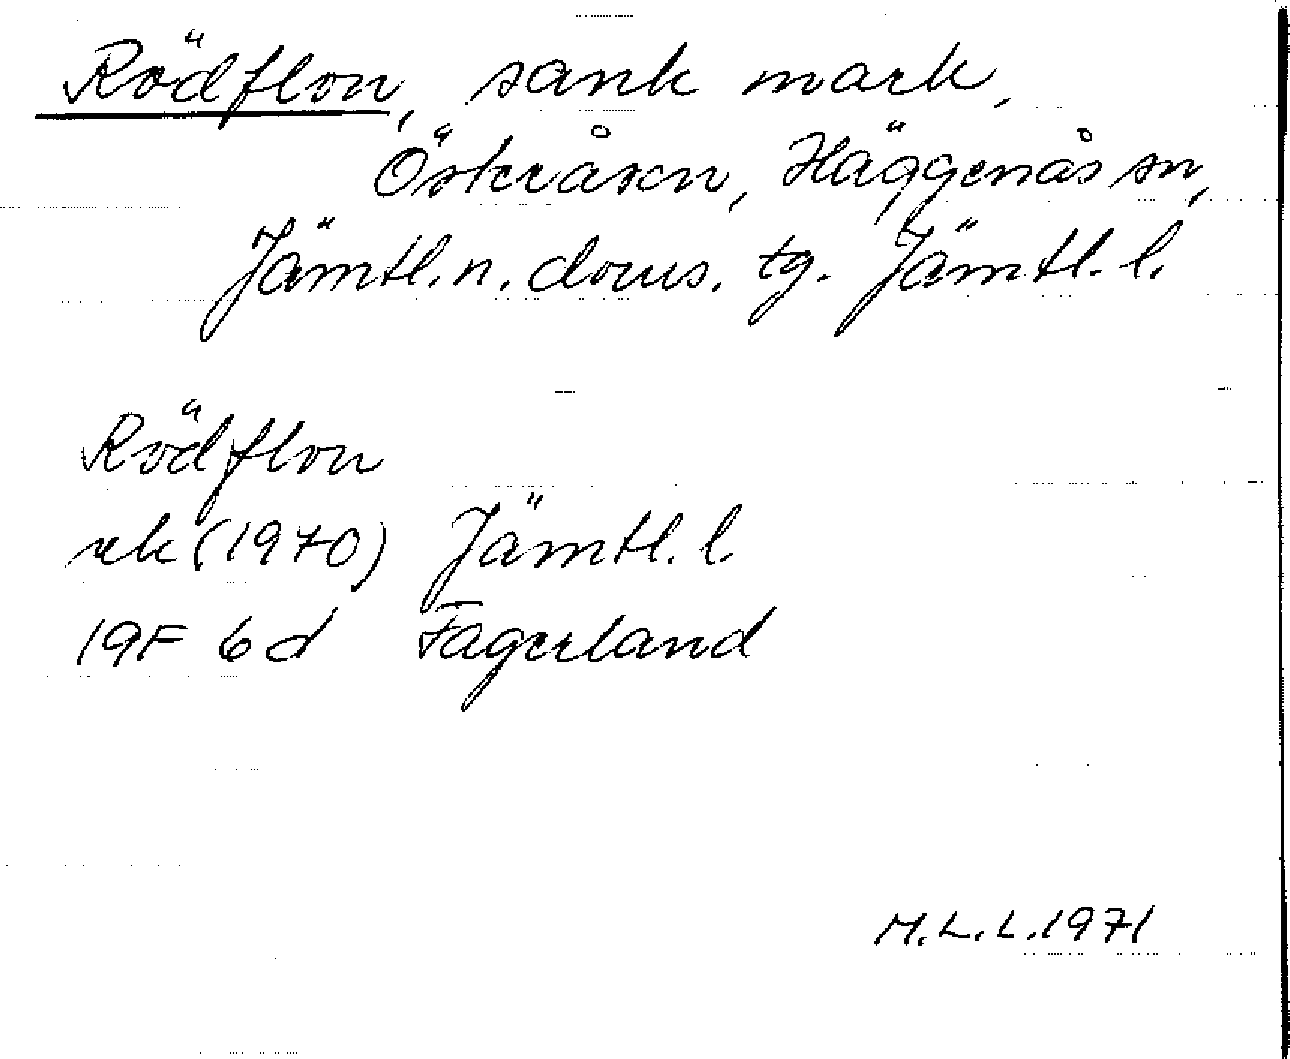 Rödflon, sank mark,
Österåsen, Häggenås sn,
Jämtl. n. doms. tg. Jämtl. l.
Rödflon
rek (1970) Jämtl. l.
19F 6d Fagerland
M.L.L. 1971